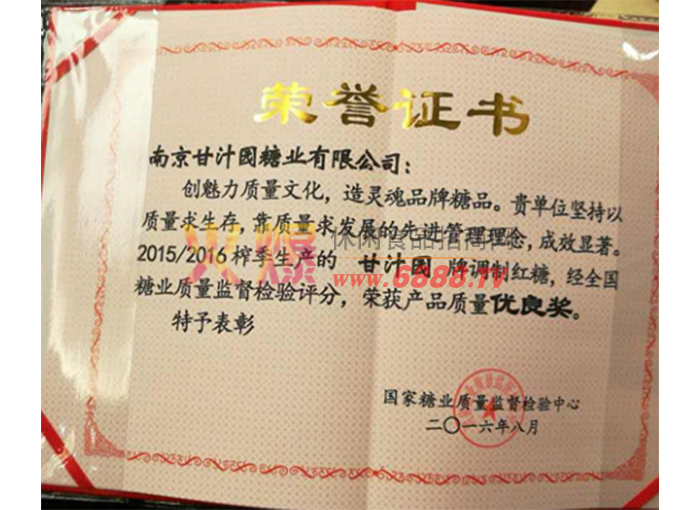 荣誉证书
南京甘汁园糖业有限公司：
创魅力质量文化，造灵魂品牌糖品。贵单位坚持以
质量求生存，靠质量求发展的先进管理理念，成效显著。
2015/2016榨季生产的 甘汁园 牌调制红糖，经全国
糖业质量监督检验评分，荣获产品质量优良奖。
特予表彰
国家糖业质量监督检验中心
二〇一六年八月
火爆
休闲食品招商网
www.6888.tv